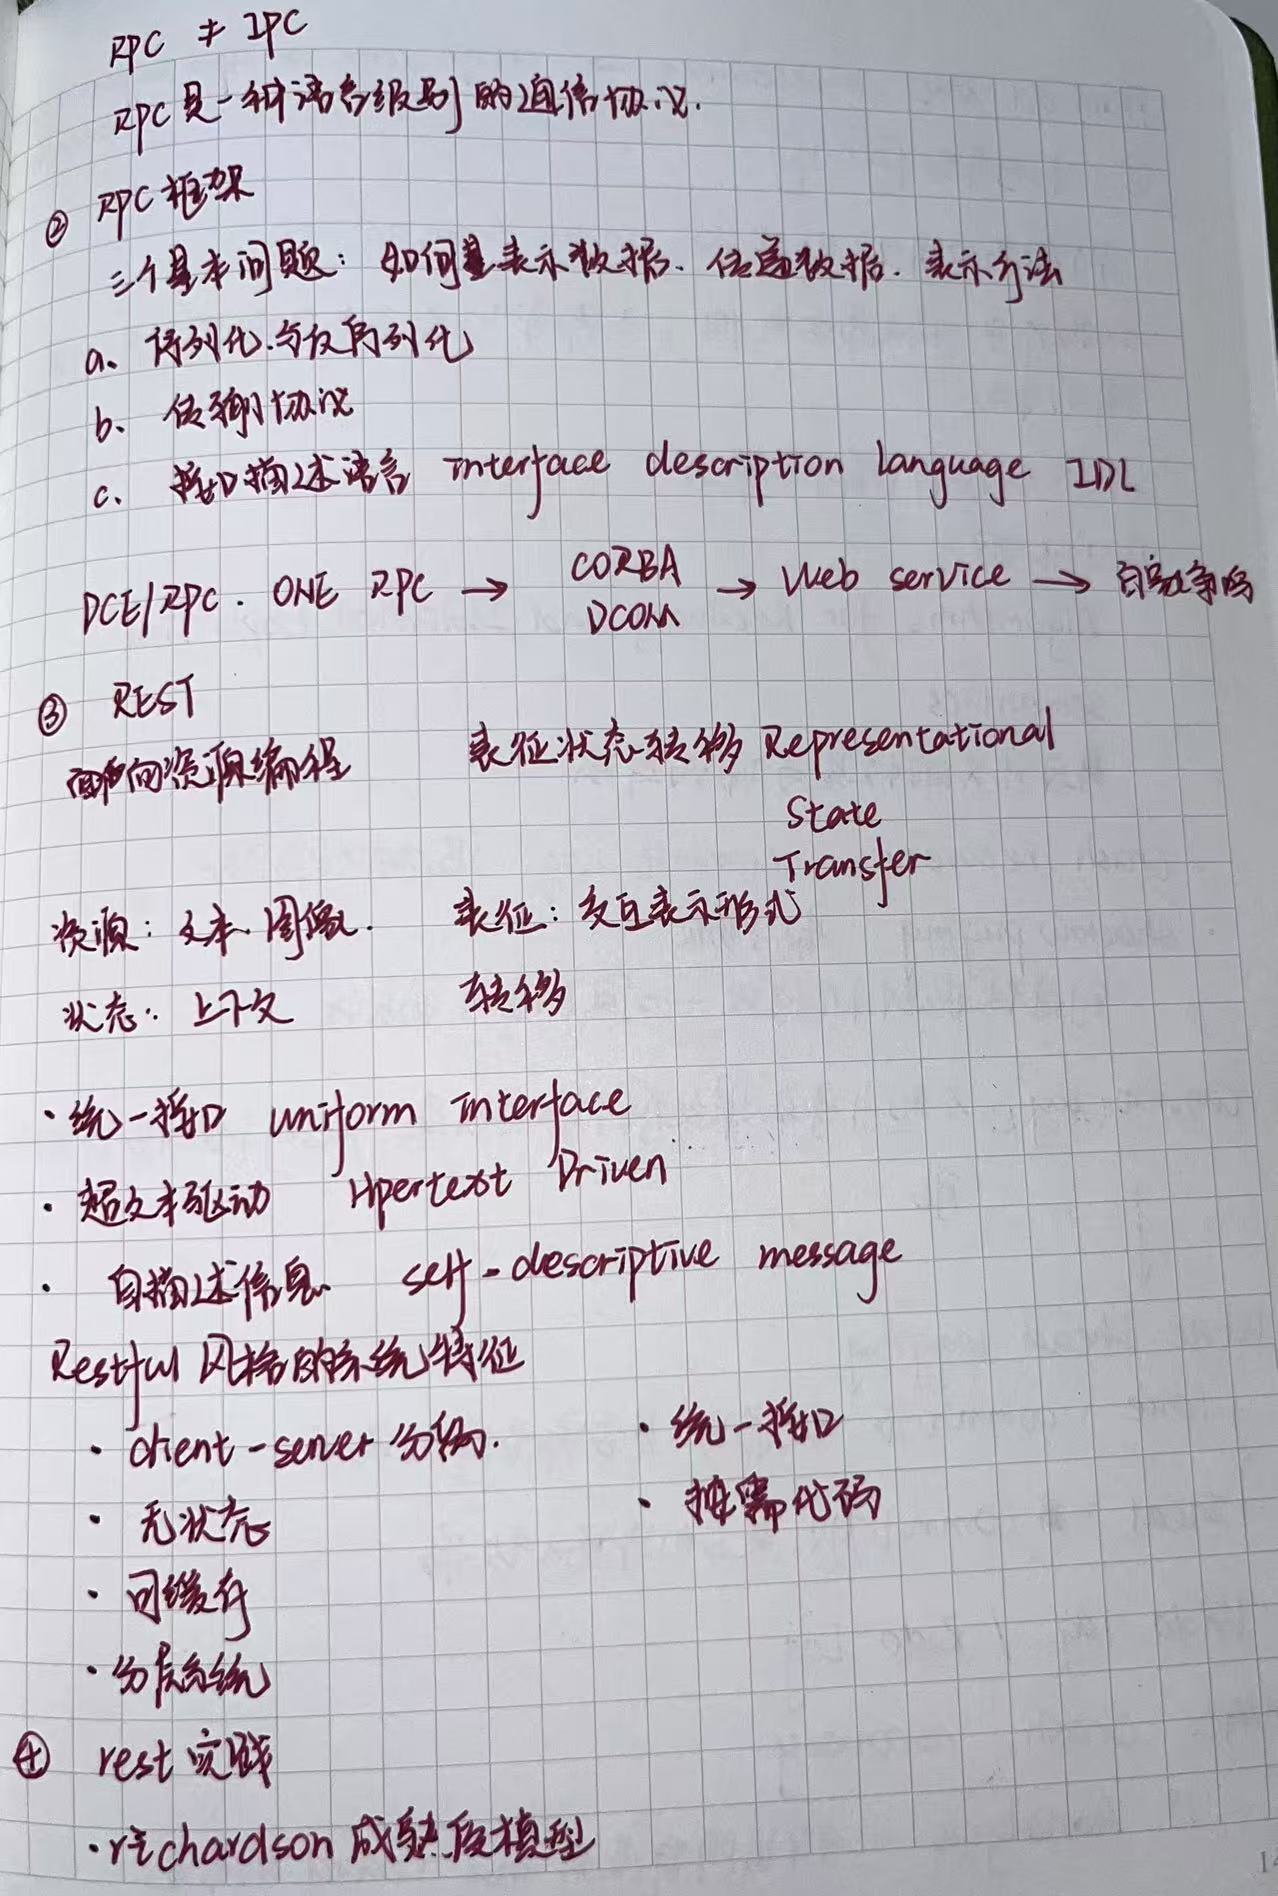 RPC ≠ IPC
RPC是一种语言级别的通信协议.
② RPC框架
三个基本问题: 如何表示数据. 传递数据. 表示方法
a. 序列化与反序列化
b. 传输协议
c. 接口描述语言 interface description language IDL
DCE/RPC. ONE RPC → CORBA DCOM → Web service → 百家争鸣
③ REST
面向资源编程
表征状态转移 Representational
State
Transfer
资源: 文本. 图像.
表征: 交互表示形式
状态: 上下文
转移
· 统一接口 uniform interface
· 超文本驱动 Hpertext Driven
· 自描述信息. self-descriptive message
Restful 风格的系统特征
· client-server 分离.
· 统一接口
· 无状态
· 按需代码
· 可缓存
· 分层系统
④ rest 实践
· richardson 成熟度模型